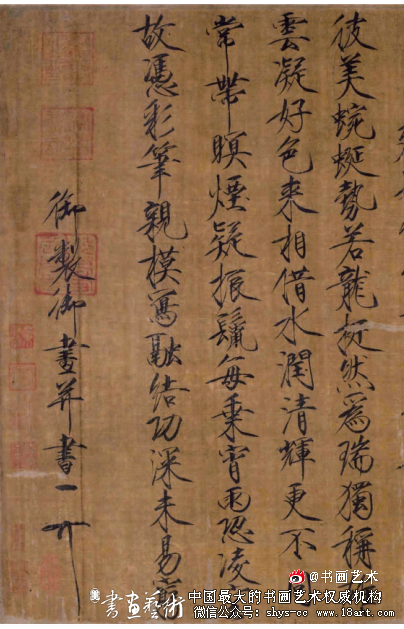 彼美蜿蜒勢若龍挺然爲瑞獨稱
雲凝好色來相借水潤清輝更不
常帶暝煙疑振鬣每乘宵雨恐凌
故憑彩筆親模寫融結功深未易窮
御製御畫并書
@书画艺术
書畫藝術
中国最大的书画艺术权威机构
微信公众号：shys-cc www.18art.com